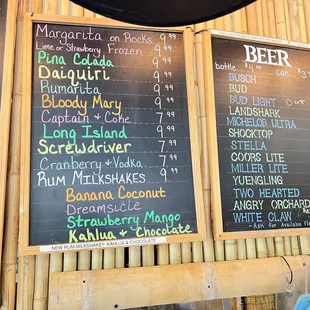 Margarita on Rocks 9.99
Lime or Strawberry Frozen 9.99
Pina Colada 9.99
Daiquiri 9.99
Rumarita 9.99
Bloody Mary 9.99
Captain & Coke 7.99
Long Island 9.99
Screwdriver 7.99
Cranberry & Vodka 7.99
Rum Milkshakes 9.99
Banana Coconut
Dreamsicle
Strawberry Mango
Kahlua & Chocolate
NEW RUM MILKSHAKE: KAHLUA & CHOCOLATE
BEER
bottle $4.00 can $3
BUSCH
BUD
BUD LIGHT OUT
LANDSHARK
MICHELOB ULTRA
SHOCKTOP
STELLA
COORS LITE
MILLER LITE
YUENGLING
TWO HEARTED
ANGRY ORCHARD
WHITE CLAW
- Ask for available